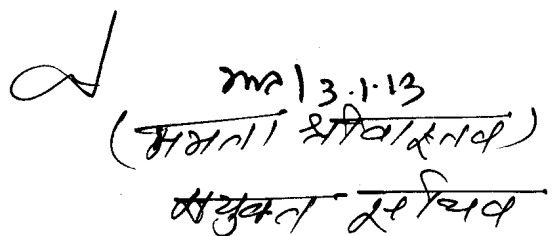 3.1.13
(ममता श्रीवास्तव)
संयुक्त सचिव